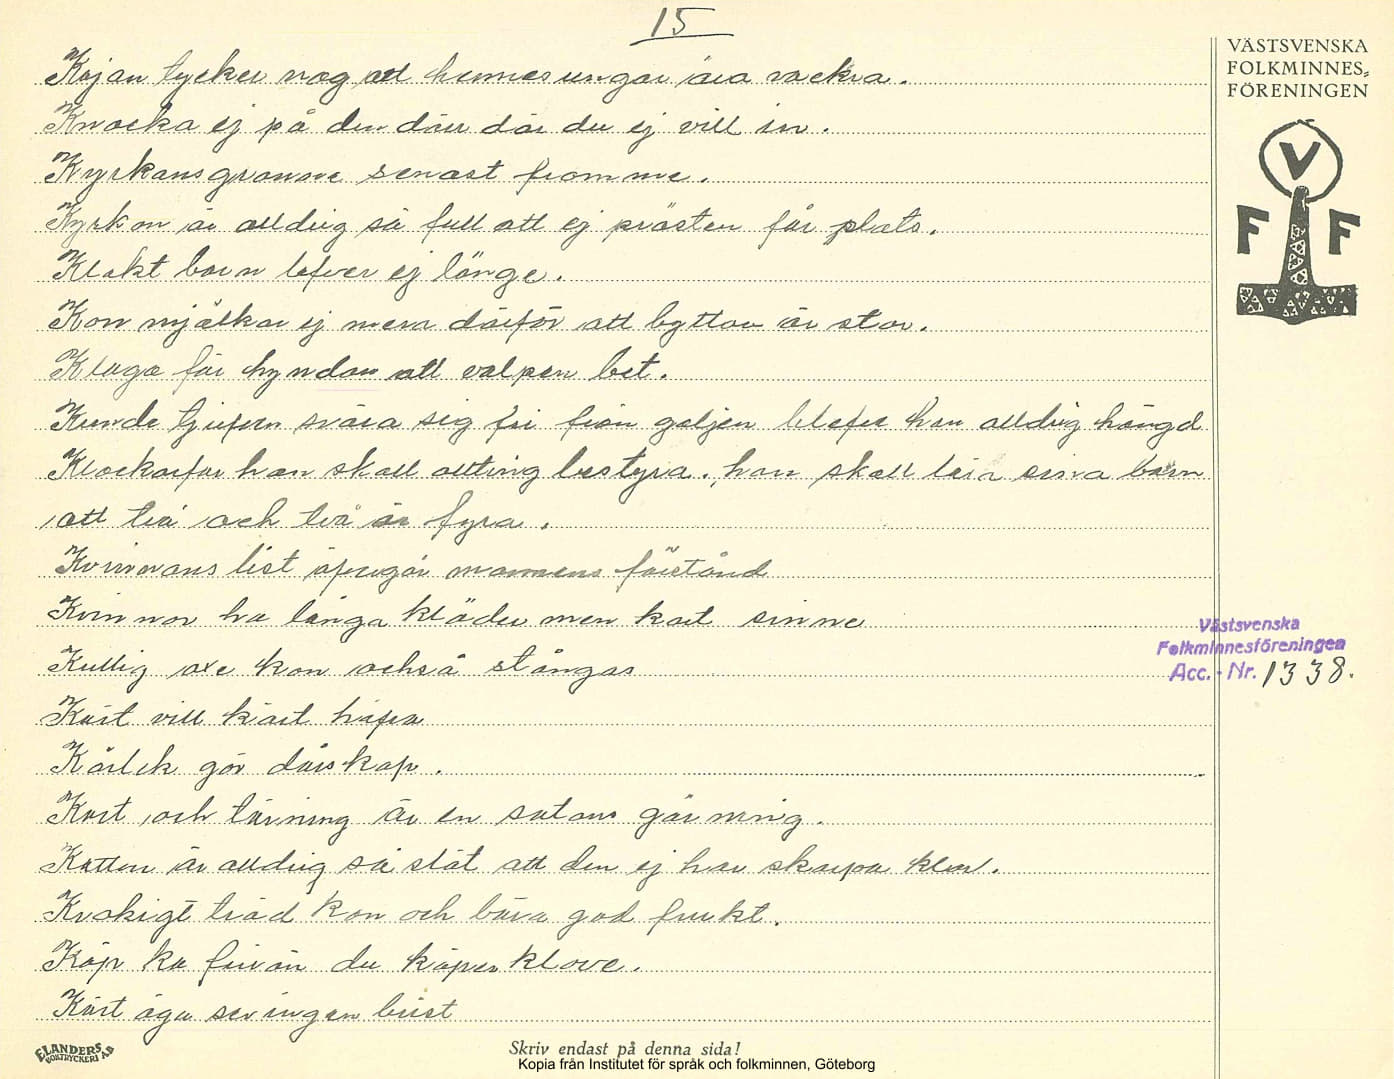 15
Kajan tycker nog att hennes ungar ära vackra.
Knacka ej på den dörr där du ej vill in.
Kyrkans granne senast fromme.
Kyrkan är alldrig så full att ej prästen får plats.
Klokt barn lefver ej länge.
Kon mjölkar ej mera därför att byttan är stor.
Klaga för hyndan att valpen bet.
Kunde tjufven svära sig fri från galjen blefve han alldrig hängd
Klockarfar han skall allting bestyra, han skall lära sina barn
att två och två är fyra.
Kvinnans list öfvergår mannens förstånd
Kvinnor ha långa kläder men kort sinne
Kullig oxe kan också stångas
Kärt vill kärt häfva
Kärlek gör dårskap.
Kort och tärning är en satans gärning.
Katten är alldrig så slät att den ej har skarpa klor.
Krokigt träd kan och bära god frukt.
Köp ko förrän du köper klave.
Kärt öga ser ingen brist
VÄSTSVENSKA
FOLKMINNES=
FÖRENINGEN
V
F F
Västsvenska
Folkminnesföreningen
Acc. - Nr. 1338.
ELANDERS
BOKTRYCKERI AB
Skriv endast på denna sida!
Kopia från Institutet för språk och folkminnen, Göteborg